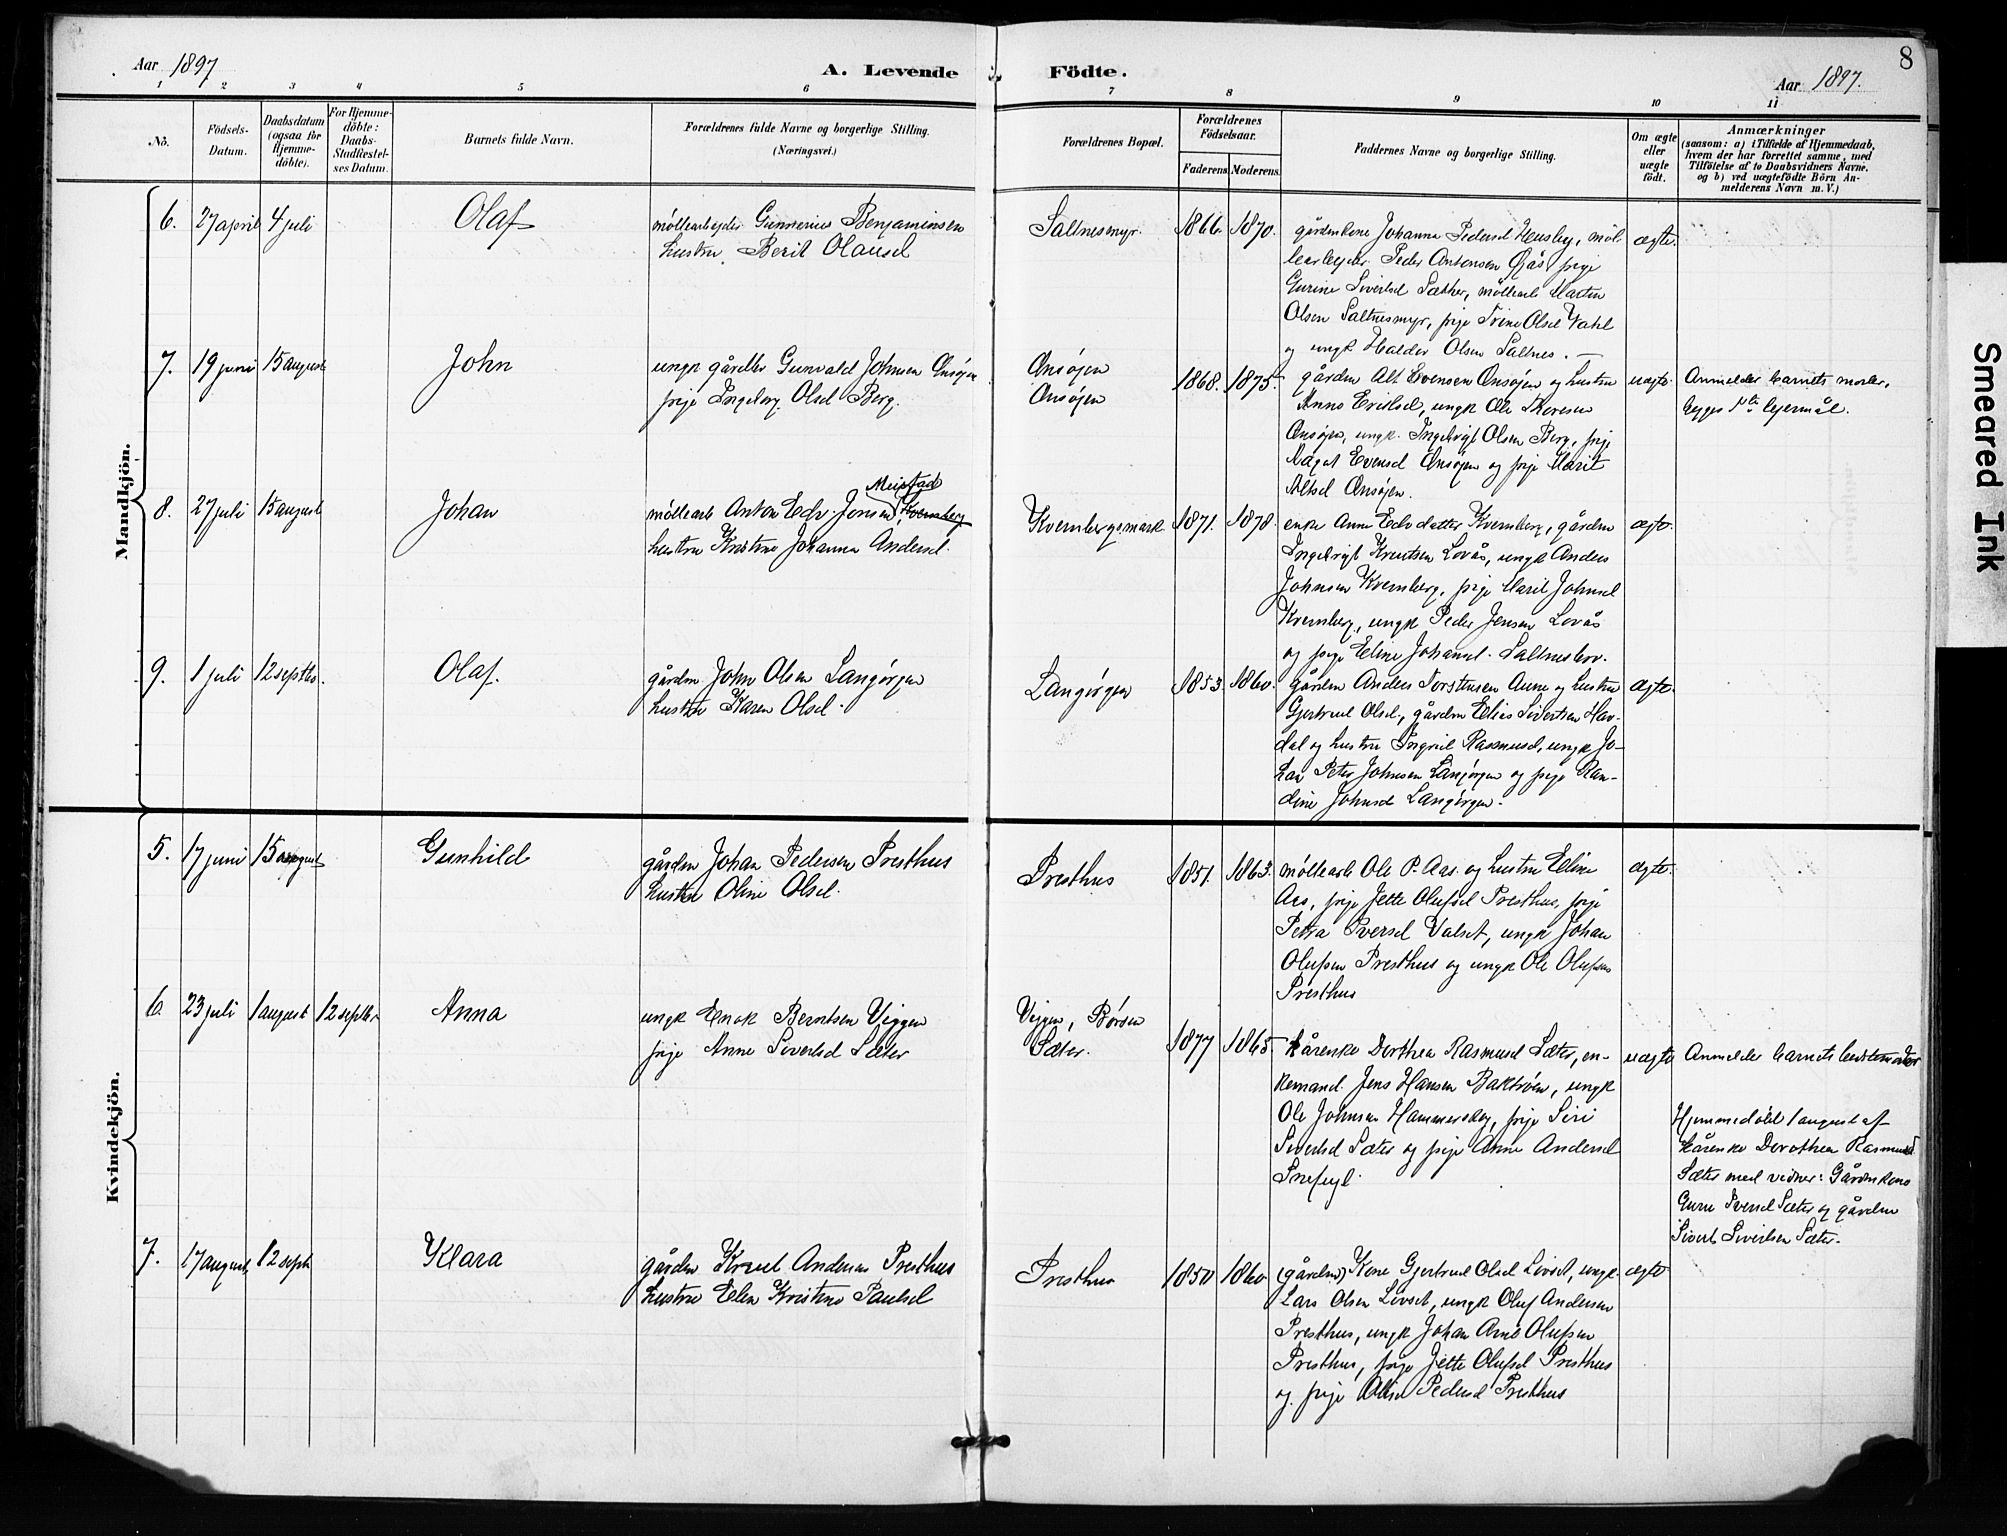 Aar 1897
A. Levende Födte.
Aar 1897.
8
1 2 3 4 5 6 7 8 9 10 11
No.
Födsels-
Datum.
Daabsdatum
(ogsaa for
Hjemme-
döbte).
For Hjemme-
döbte:
Daabs-
Stadfæstel-
ses Datum.
Barnets fulde Navn.
Forældrenes fulde Navne og borgerlige Stilling.
(Næringsvei.)
Forældrenes Bopæl.
Forældrenes
Födselsaar.
Faderens. Moderens.
Faddernes Navne og borgerlige Stilling.
Om ægte
eller
uægte
födt.
Anmærkninger
(saasom: a) i Tilfælde af Hjemmedaab,
hvem der har forrettet samme, med
Tilföielse af to Daabsvidners Navne.
og b) ved uægtefödte Börn An-
melderens Navn m. V.)
Mandkjön.
6. 27 april 4 juli Olaf
møllearbejder Gunnerius Benjaminsen
hustru Berit Olausd
Saltnesmyr. 1866. 1870.
gårdmkone Johanna Pedersd Hensby, møl-
learbejder Peder Antonsen Øjås, pige
Gurine Sivertsd Sæther, møllearb Martin
Olsen Saltnesmyr, pige Trine Olsd Vahl
og ungk Haldor Olsen Saltnes. —
ægte.
7. 19 juni 15 august John
ungk gårdbr Gunvald Johnsen Onsøjen
pige Ingeborg Olsd Berg.
Onsøjen
Onsøjen
1868. 1875.
gårdm Alt Evensen Onsøjen og hustru
Anne Eriksd, ungk Ole Thoresen
Onsøjen, ungk. Ingebrigt Olsen Berg, pige
Aagot Evensd Onsøjen og pige Marit
Altsd Onsøjen.
uægte.
Anmelder barnets moder,
begges 1ste lejermål.
8. 27 juli 15 august Johan
Meistad
møllearb Anton Edv. Jonsen Kvernberg
hustru Kristine Johanna Andersd.
Kvernbergsmark 1871. 1878.
enke Anne Edv.datter Kvernberg, gårdm
Ingebrigt Knutsen Lovås, ungk Anders
Johnsen Kvernberg, pige Marit Johnsd
Kvernberg, ungk Peder Jensen Lovås
og pige Eline Johansd. Saltnes
ægte.
9. 1 juli 12 septbr. Olaf.
gårdm John Olsen Langørgen
hustru Karen Olsd.
Langørgen 1853. 1860.
gårdm Anders Torstensen Aune og hustru
Gjertrud Olsd, gårdm Elias Sivertsen Hav-
dal og hustru Ingrid Rasmusd, ungk Jo-
han Peter Johnsen Langørgen og pige Ran-
dine Johnsd Langørgen.
ægte.
Kvindekjön.
5. 17 juni 15 august Gunhild
gårdm Johan Pedersen Presthus
hustru Oline Olsd.
Presthus 1851. 1863.
møllearb Ole P. Aas og hustru Eline
Aas, pige Jette Olufsd Presthus, pige
Petra Iversd Valset, ungk Johan
Olufsen Presthus og ungk Ole Olufsen
Presthus
ægte.
6. 23 juli 1 august 12 septbr. Anna
ungk Enok Berntsen Viggen
pige Anne Sivertsd Sæter
Viggen, Børsen
Sæter.
1877 1865.
kårenke Dorthea Rasmusd Sæter, en-
kemand Jens Hansen Baktrøen, ungk
Ole Johnsen Hammerskog, pige Siri
Sivertsd Sæter og pige Anne Andersd
Snefugl.
uægte
Anmelder barnets bedstemoder
Hjemmedøbt 1 august af
kårenke Dorothea Rasmusd
Sæter med vidner: Gårdmkone
Guru Iversd Sæter og gårdm
Sivert Sivertsen Sæter.
7. 17 august 12 septb Klara
gårdm Knut Andersen Presthus
hustru Elen Kristine Paulsd
Presthus 1850 1860
(gårdm) Kone Gjertrud Olsd Lovset, ungk.
Lars Olsen Lovset, ungk Oluf Andersen
Presthus, ungk Johan Arnt Olufsen
Presthus, pige Jette Olufsd Presthus
og pige Pedersd Presthus
ægte
Smeared Ink